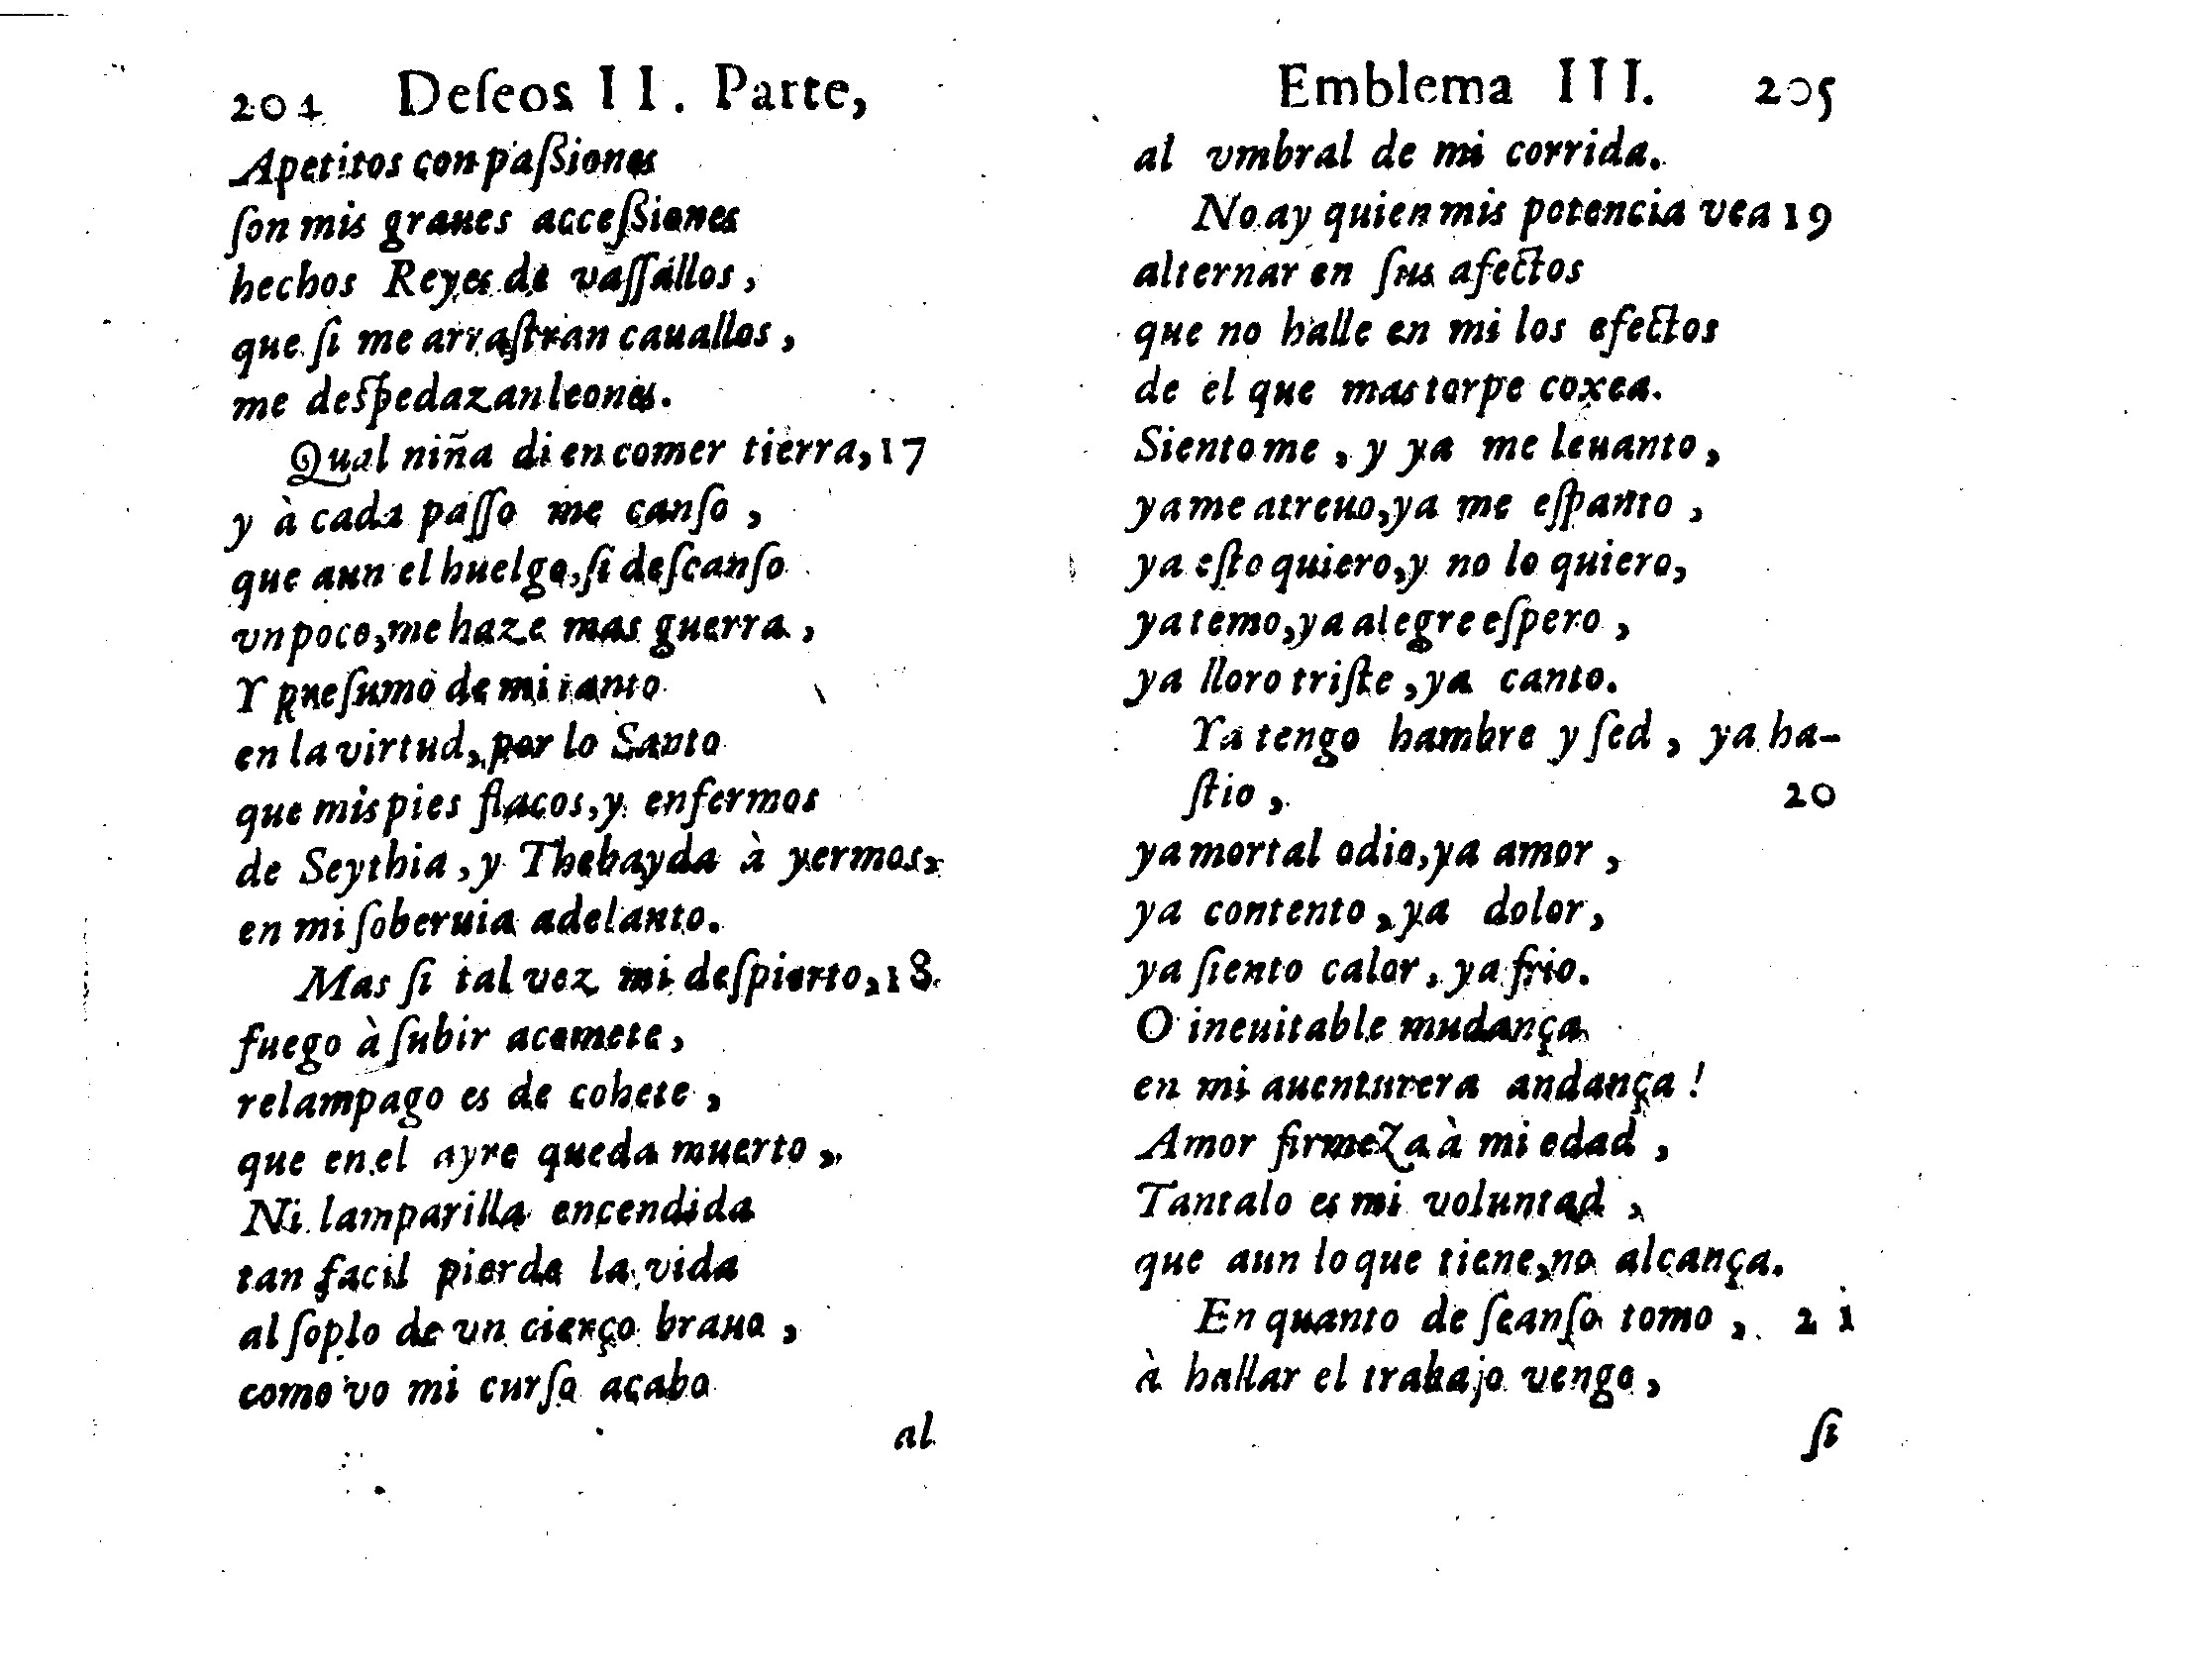 204 Deſeos II. Parte,
Apetitos con paſsiones
ſon mis graues acceſsiones
hechos Reyes de vaſſallos,
que ſi me arraſtran cauallos,
me deſpedazan leones.
Qual niña di en comer tierra, 17
y à cada paſſo me canſo,
que aun el huelgo, ſi deſcanſo
vn poco, me haze mas guerra,
Y preſumo de mi tanto
en la virtud, por lo Santo
que mis pies flacos, y enfermos
de Seythia, y Thebayda à yermos,
en mi ſoberuia adelanto.
Mas ſi tal vez mi deſpierto, 18
fuego à ſubir acomete,
relampago es de cohete,
que en el ayre queda muerto,
Ni lamparilla encendida
tan facil pierde la vida
al ſoplo de vn cierço brauo,
como vo mi curſo acabo
al
Emblema III. 205
al vmbral de mi corrida.
No ay quien mis potencia vea 19
alternar en ſus afectos
que no halle en mi los efectos
de el que mas torpe coxea.
Siento me, y ya me leuanto,
ya me atreuo, ya me eſpanto,
ya eſto quiero, y no lo quiero,
ya temo, ya alegre eſpero,
ya lloro triſte, ya canto.
Ya tengo hambre y ſed, ya ha-
ſtio, 20
ya mortal odio, ya amor,
ya contento, ya dolor,
ya ſiento calor, ya frio.
O ineuitable mudança
en mi auenturera andança!
Amor firmeza à mi edad,
Tantalo es mi voluntad,
que aun lo que tiene, no alcança.
En quanto de ſeanſo tomo, 21
à hallar el trabajo vengo,
ſi